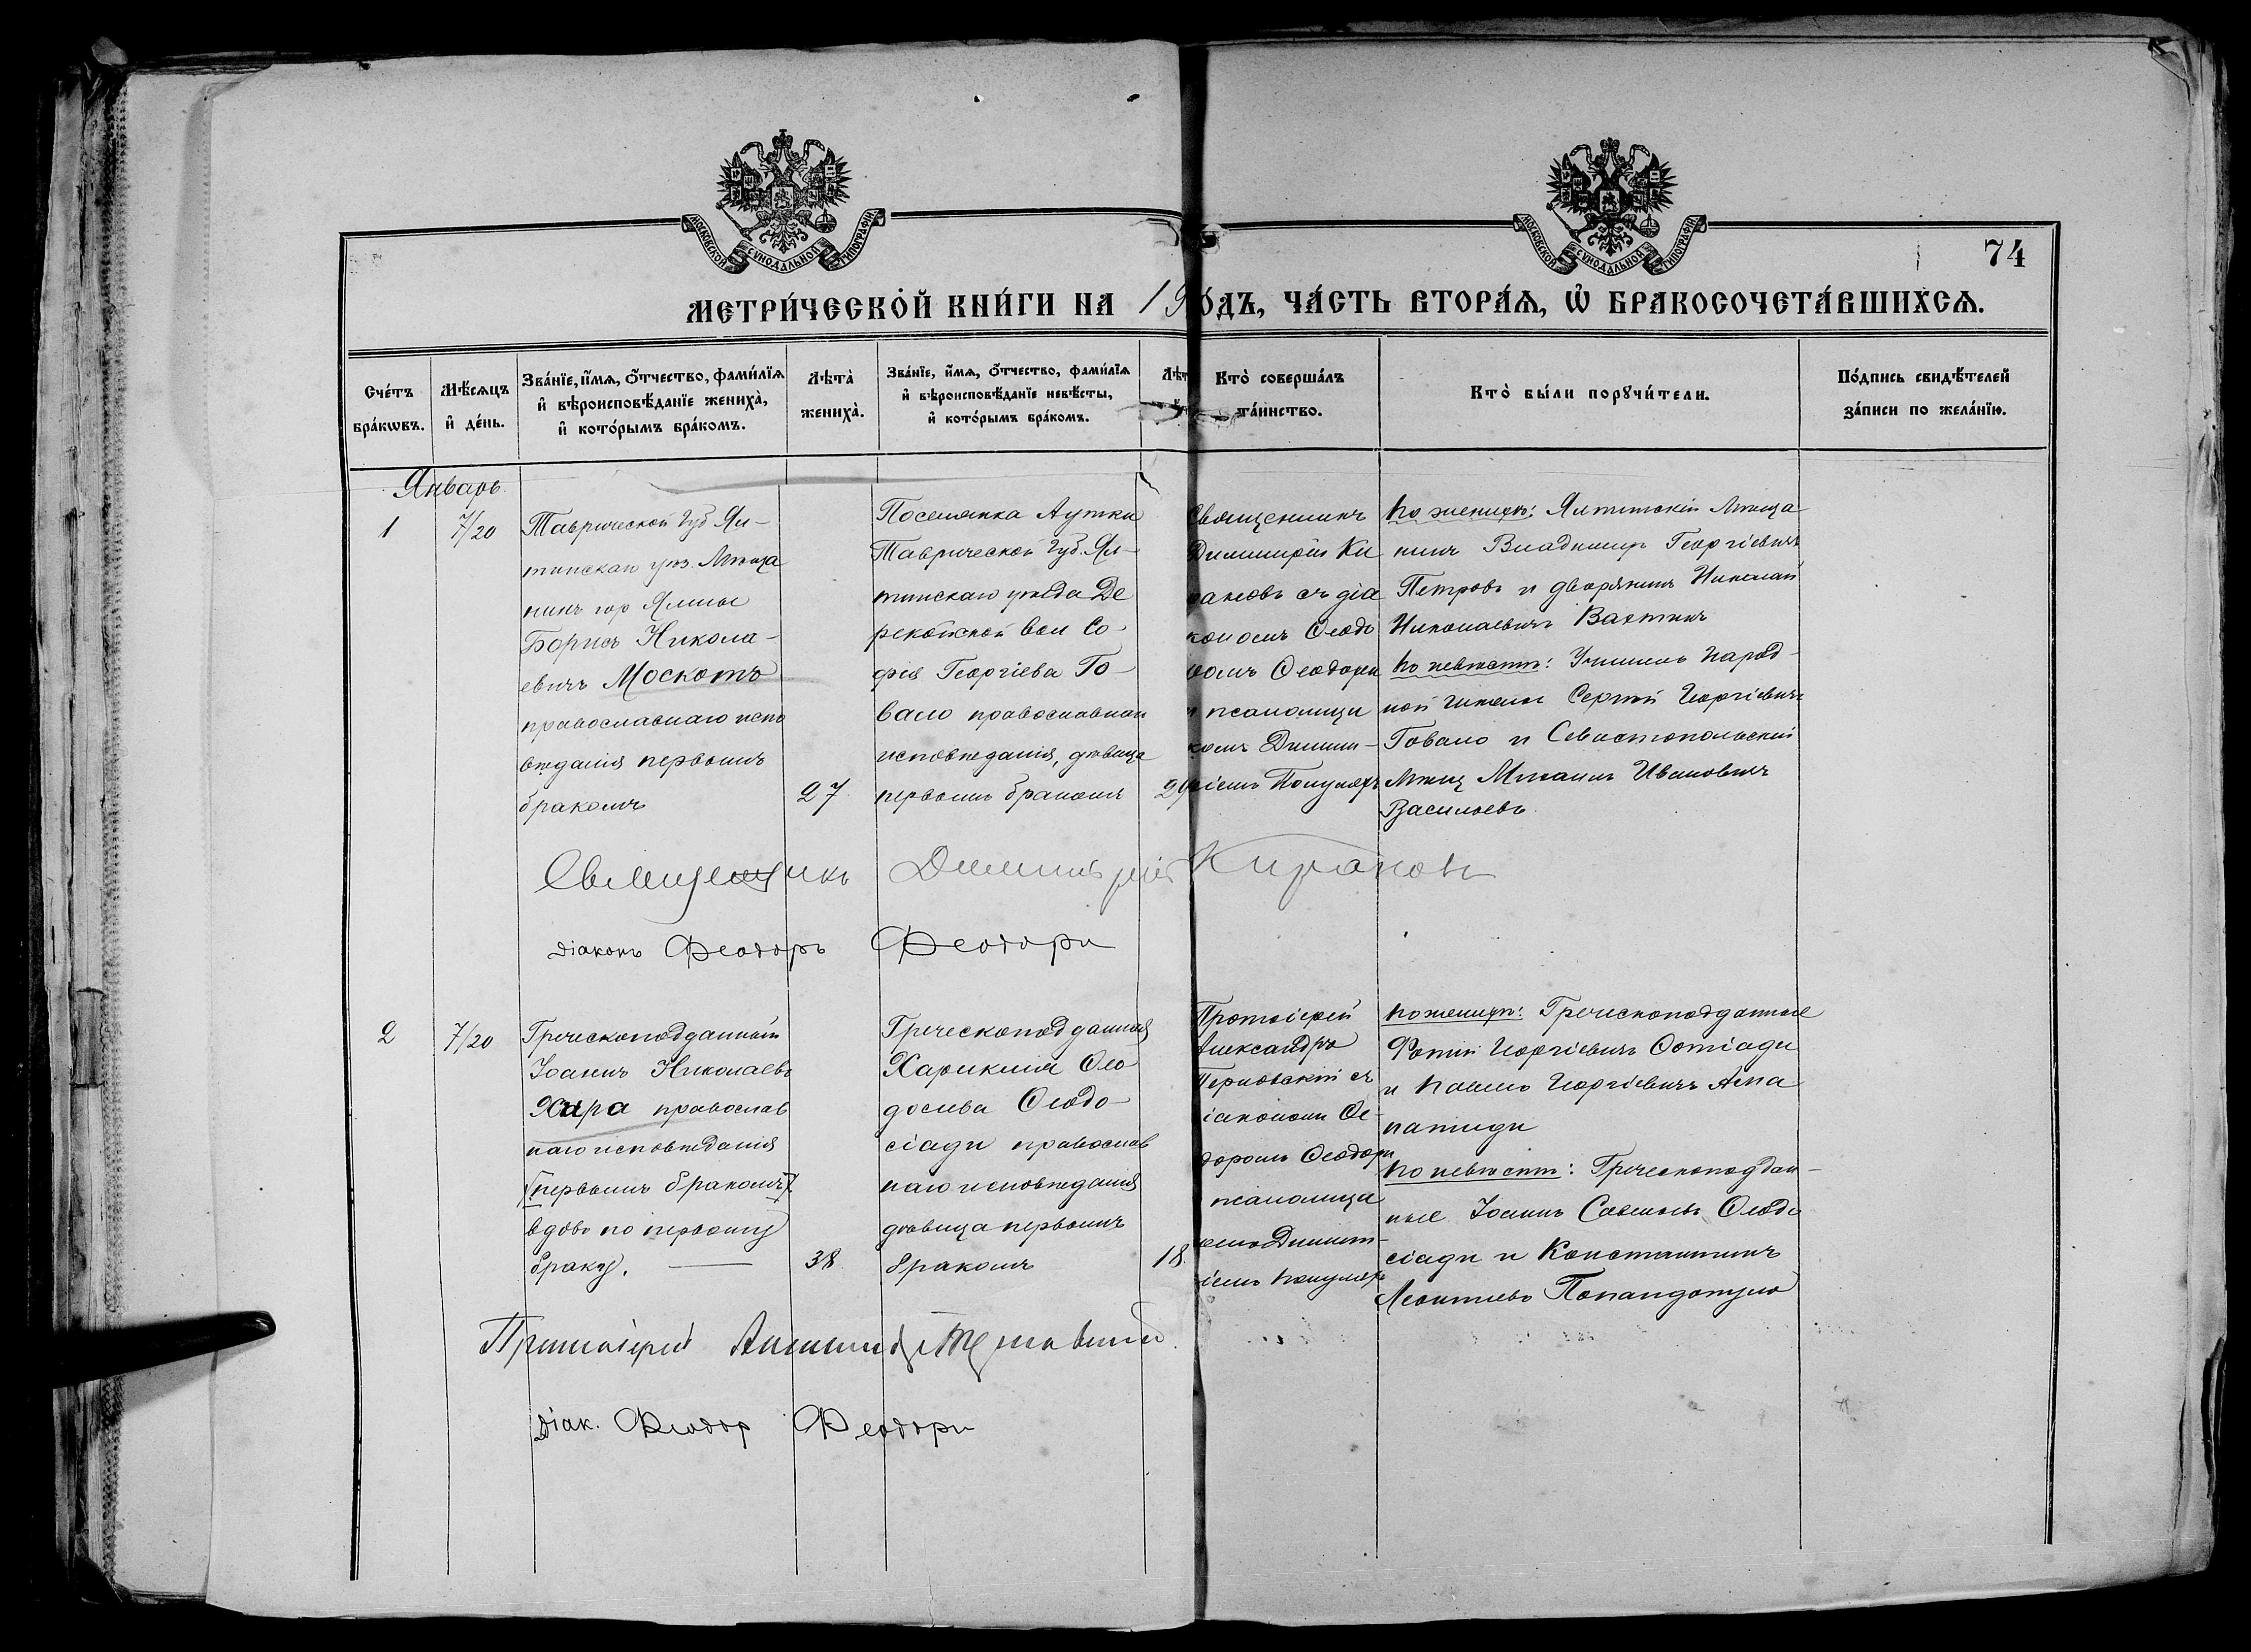 МОСКОВСКОЙ СѴНОДАЛЬНОЙ ТИПОГРАФІИ
МОСКОВСКОЙ СѴНОДАЛЬНОЙ ТИПОГРАФІИ
74
МЕТРИ́ЧЕСКОЙ КНИ́ГИ НА 19 ГО́ДЪ, ЧА́СТЬ ВТОРА́Ѧ, Ѡ БРАКОСОЧЕТА́ВШИХСѦ.
Сче́тъ бра́кѡвъ.
Мѣ́сѧцъ и де́нь.
Зва́нїе, и́мѧ, ѻ́тчество, фами́лїѧ и вѣроисповѣ́данїе жениха̀, и кото́рымъ бра́комъ.
Лѣта̀ жениха̀.
Зва́нїе, и́мѧ, ѻ́тчество, фами́лїѧ и вѣроисповѣ́данїе невѣ́сты, и кото́рымъ бра́комъ.
Лѣт
Кто̀ соверша́лъ та́инство.
Кто̀ бы́ли порꙋчи́тели.
По́дпись свидѣ́телей за́писи по жела́нїю.
Январь
1
7/20
Таврической Губ Ял-
тинскаго уѣз. Мѣща
нинъ гор Ялты
Борисъ Никола-
евичъ Москотъ
православнаго испо
вѣданія первымъ
бракомъ
27
Поселянка Аутки
Таврической Губ. Ял-
тинскаго уѣзда Де
рекойской вол Со-
фія Георгіева Го-
вало православнаго
исповѣданія, дѣвица
первымъ бракомъ
29
Священникъ
Димитрій Ки
рановъ съ діа
кономъ Ѳеодо
ромъ Ѳеодори
и псаломщи
комъ Димит-
ріемъ Популяхъ
По женихѣ: Ялтинскій Мѣща
нинъ Владимиръ Георгіевичъ
Петровъ и дворянинъ Николай
Николаевичъ Вахтинъ
По невѣстѣ: Учитель народ-
ной школы Сергѣй Георгіевичъ
Говало и Севастопольскій
Мѣщ Михаилъ Ивановичъ
Васильевъ
Священникъ Димитрій Кирановъ
діаконъ Феодоръ Феодори
2
7/20
Греческоподданный
Іоаннъ Николаевъ
Хира православ
наго исповѣданія
[первымъ бракомъ]
вдовъ по первому
браку.
38
Греческоподданная
Хариклія Ѳео
досіева Ѳеодо-
сіади православ
наго исповѣданія
дѣвица первымъ
бракомъ
18
Протоіерей
Александръ
Терновскій съ
іакономъ Ѳе-
доромъ Ѳеодори
псаломщи
комъ Димит-
іемъ Популяхъ
По женихѣ: Греческоподданные
Фотій Георгіевичъ Сотіади
и Павелъ Георгіевичъ
По невѣстѣ: Греческоподдан-
ные Іоаннъ Савельевъ Ѳеодо
сіади и Константинъ
Леонтіевъ Попандопуло
Протоіерей Александръ Терновскій
Діак. Феодор Феодори